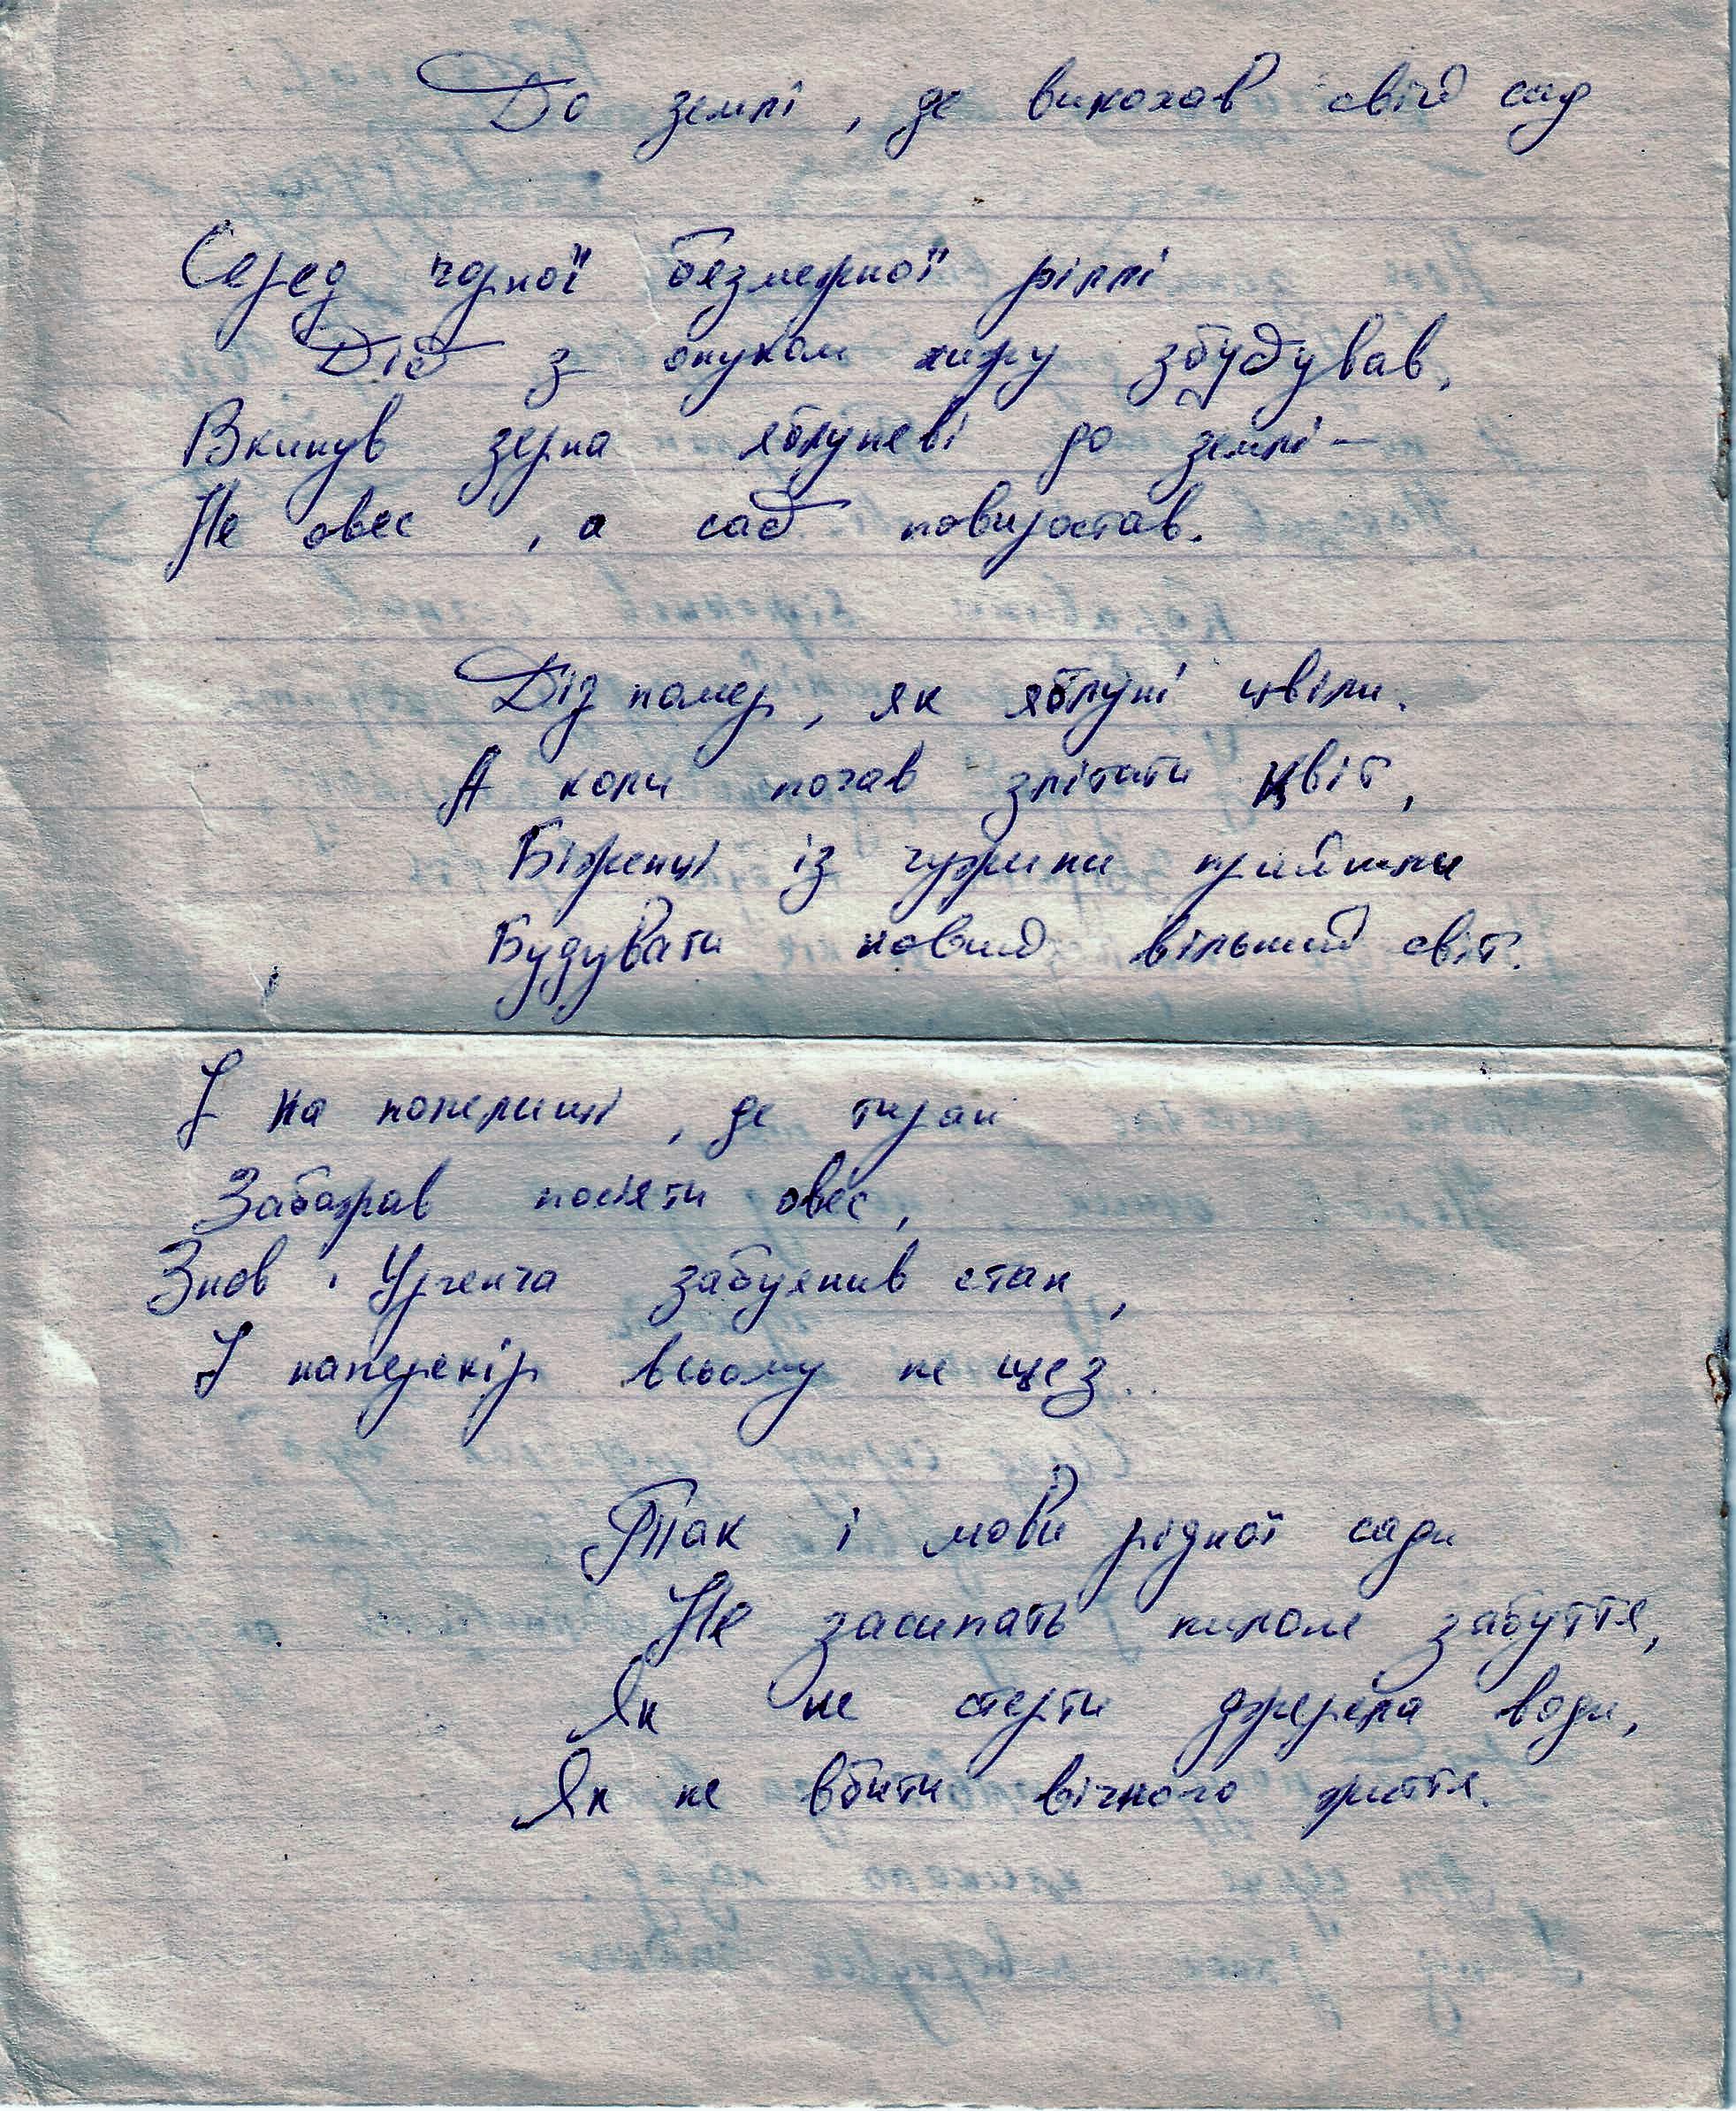 До землі, де викохав свій сад
Серед чорної безмежної ріллі
Дід з онуком хижу збудував,
Вкинув зерна яблуневі до землі –
Не овес, а сад повиростав.
Дід помер, як яблуні цвіли.
А коли почав злітати цвіт,
Біженці із чужини прийшли
Будувати новий вільний світ.
І на попелищі, де тиран
Забажав посіяти овес,
Знов Ургенча забуянив стан,
І наперекір всьому не щез.
Так і мови рідної сади
Не засипать пилом забуття,
Як не стерти джерела води,
Як не вбити вічного життя.